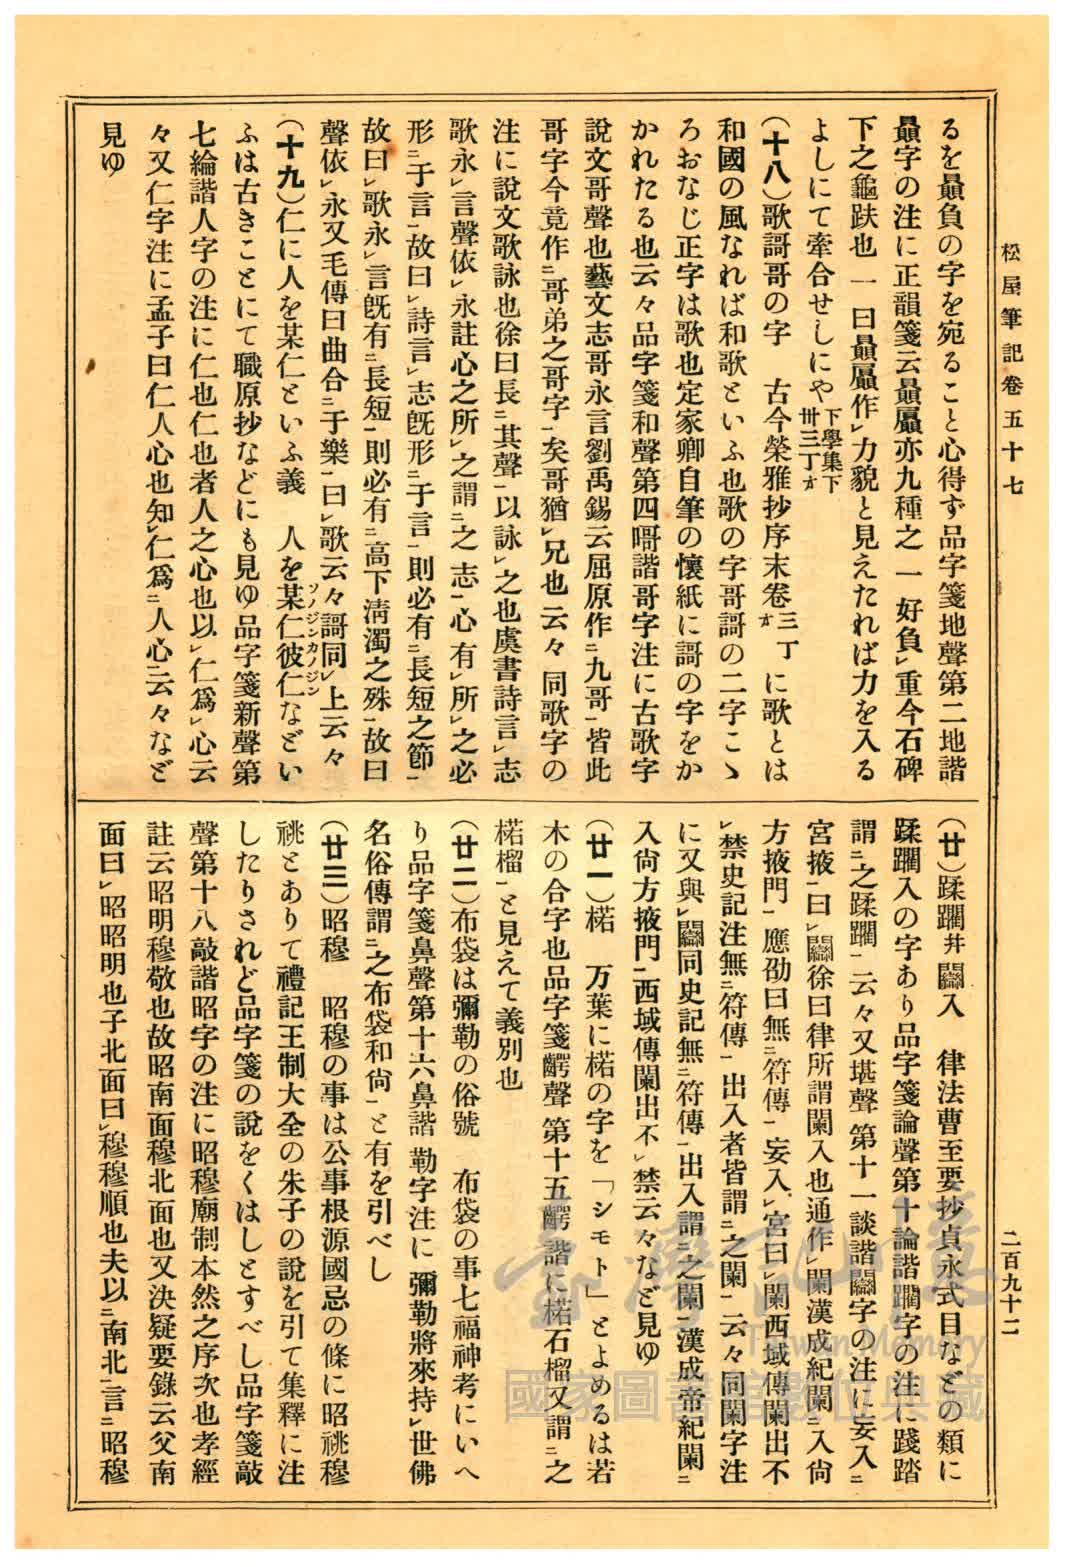 松屋筆記卷五十七
二百九十二
るを贔負の字を宛ること心得ず品字箋地聲第二地諧
贔字の注に正韻箋云贔屭亦九種之一好負レ重今石碑
下之龜趺也一曰贔屭作レ力貌と見えたれば力を入る
よしにて牽合せしにや下學集下卅三丁オ
(十八)歌謌哥の字　古今榮雅抄序末卷三丁オに歌とは
和國の風なれば和歌といふ也歌の字哥謌の二字こゝ
ろおなじ正字は歌也定家卿自筆の懷紙に謌の字をか
かれたる也云々品字箋和聲第四哿諧哥字注に古歌字
説文哥聲也藝文志哥永言劉禹錫云屈原作ニ九哥一皆此
哥字今竟作ニ哥弟之哥字一矣哥猶レ兄也云々同歌字の
注に說文歌詠也徐曰長ニ其聲一以詠レ之也虞書詩言レ志
歌永レ言聲依レ永註心之所レ之謂ニ之志一心有レ所レ之必
形ニ于言一故曰レ詩言レ志既形ニ于言一則必有ニ長短之節一
故曰レ歌永レ言既有ニ長短一則必有ニ高下淸濁之殊一故曰
聲依レ永又毛傳曰曲合ニ于樂一曰レ歌云々謌同レ上云々
(十九)仁に人を某仁といふ義　人を某仁彼仁などい
ソノジンカノジン
ふは古きことにて職原抄などにも見ゆ品字箋新聲第
七綸諧人字の注に仁也仁也者人之心也以レ仁爲レ心云
々又仁字注に孟子曰仁人心也知レ仁爲ニ人心一云々など
見ゆ
(廿)蹂躙幷闌入　律法曹至要抄貞永式目などの類に
蹂躙入の字あり品字箋論聲第十論諧躙字の注に踐踏
謂ニ之蹂躙一云々又堪聲第十一談諧闌字の注に妄入ニ
宮掖一曰レ闌徐曰律所謂闌入也通作レ闌漢成紀闌ニ入尙
方掖門一應劭曰無ニ符傳一妄入レ宮曰レ闌西域傳闌出不
レ禁史記注無ニ符傳一出入者皆謂ニ之闌一云々同闌字注
に又與レ闌同史記無ニ符傳一出入謂ニ之闌一漢成帝紀闌ニ
入尙方掖門一西域傳闌出不レ禁云々など見ゆ
(廿一)楉　万葉に楉の字を「シモト」とよめるは若
木の合字也品字箋齶聲第十五齶諧に楉石榴又謂ニ之
楉榴一と見えて義別也
(廿二)布袋は彌勒の俗號　布袋の事七福神考にいへ
り品字箋鼻聲第十六鼻諧勒字注に彌勒將來持レ世佛
名俗傳謂ニ之布袋和尙一と有を引べし
(廿三)昭穆　昭穆の事は公事根源國忌の條に昭祧穆
祧とありて禮記王制大全の朱子の說を引て集釋に注
したりされど品字箋の說をくはしとすべし品字箋敲
聲第十八敲諧昭字の注に昭穆廟制本然之序次也孝經
註云昭明穆敬也故昭南面穆北面也又決疑要錄云父南
面曰レ昭昭明也子北面曰レ穆穆順也夫以ニ南北一言ニ昭穆
臺灣記憶
Taiwan Memory
國家圖書館數位典藏